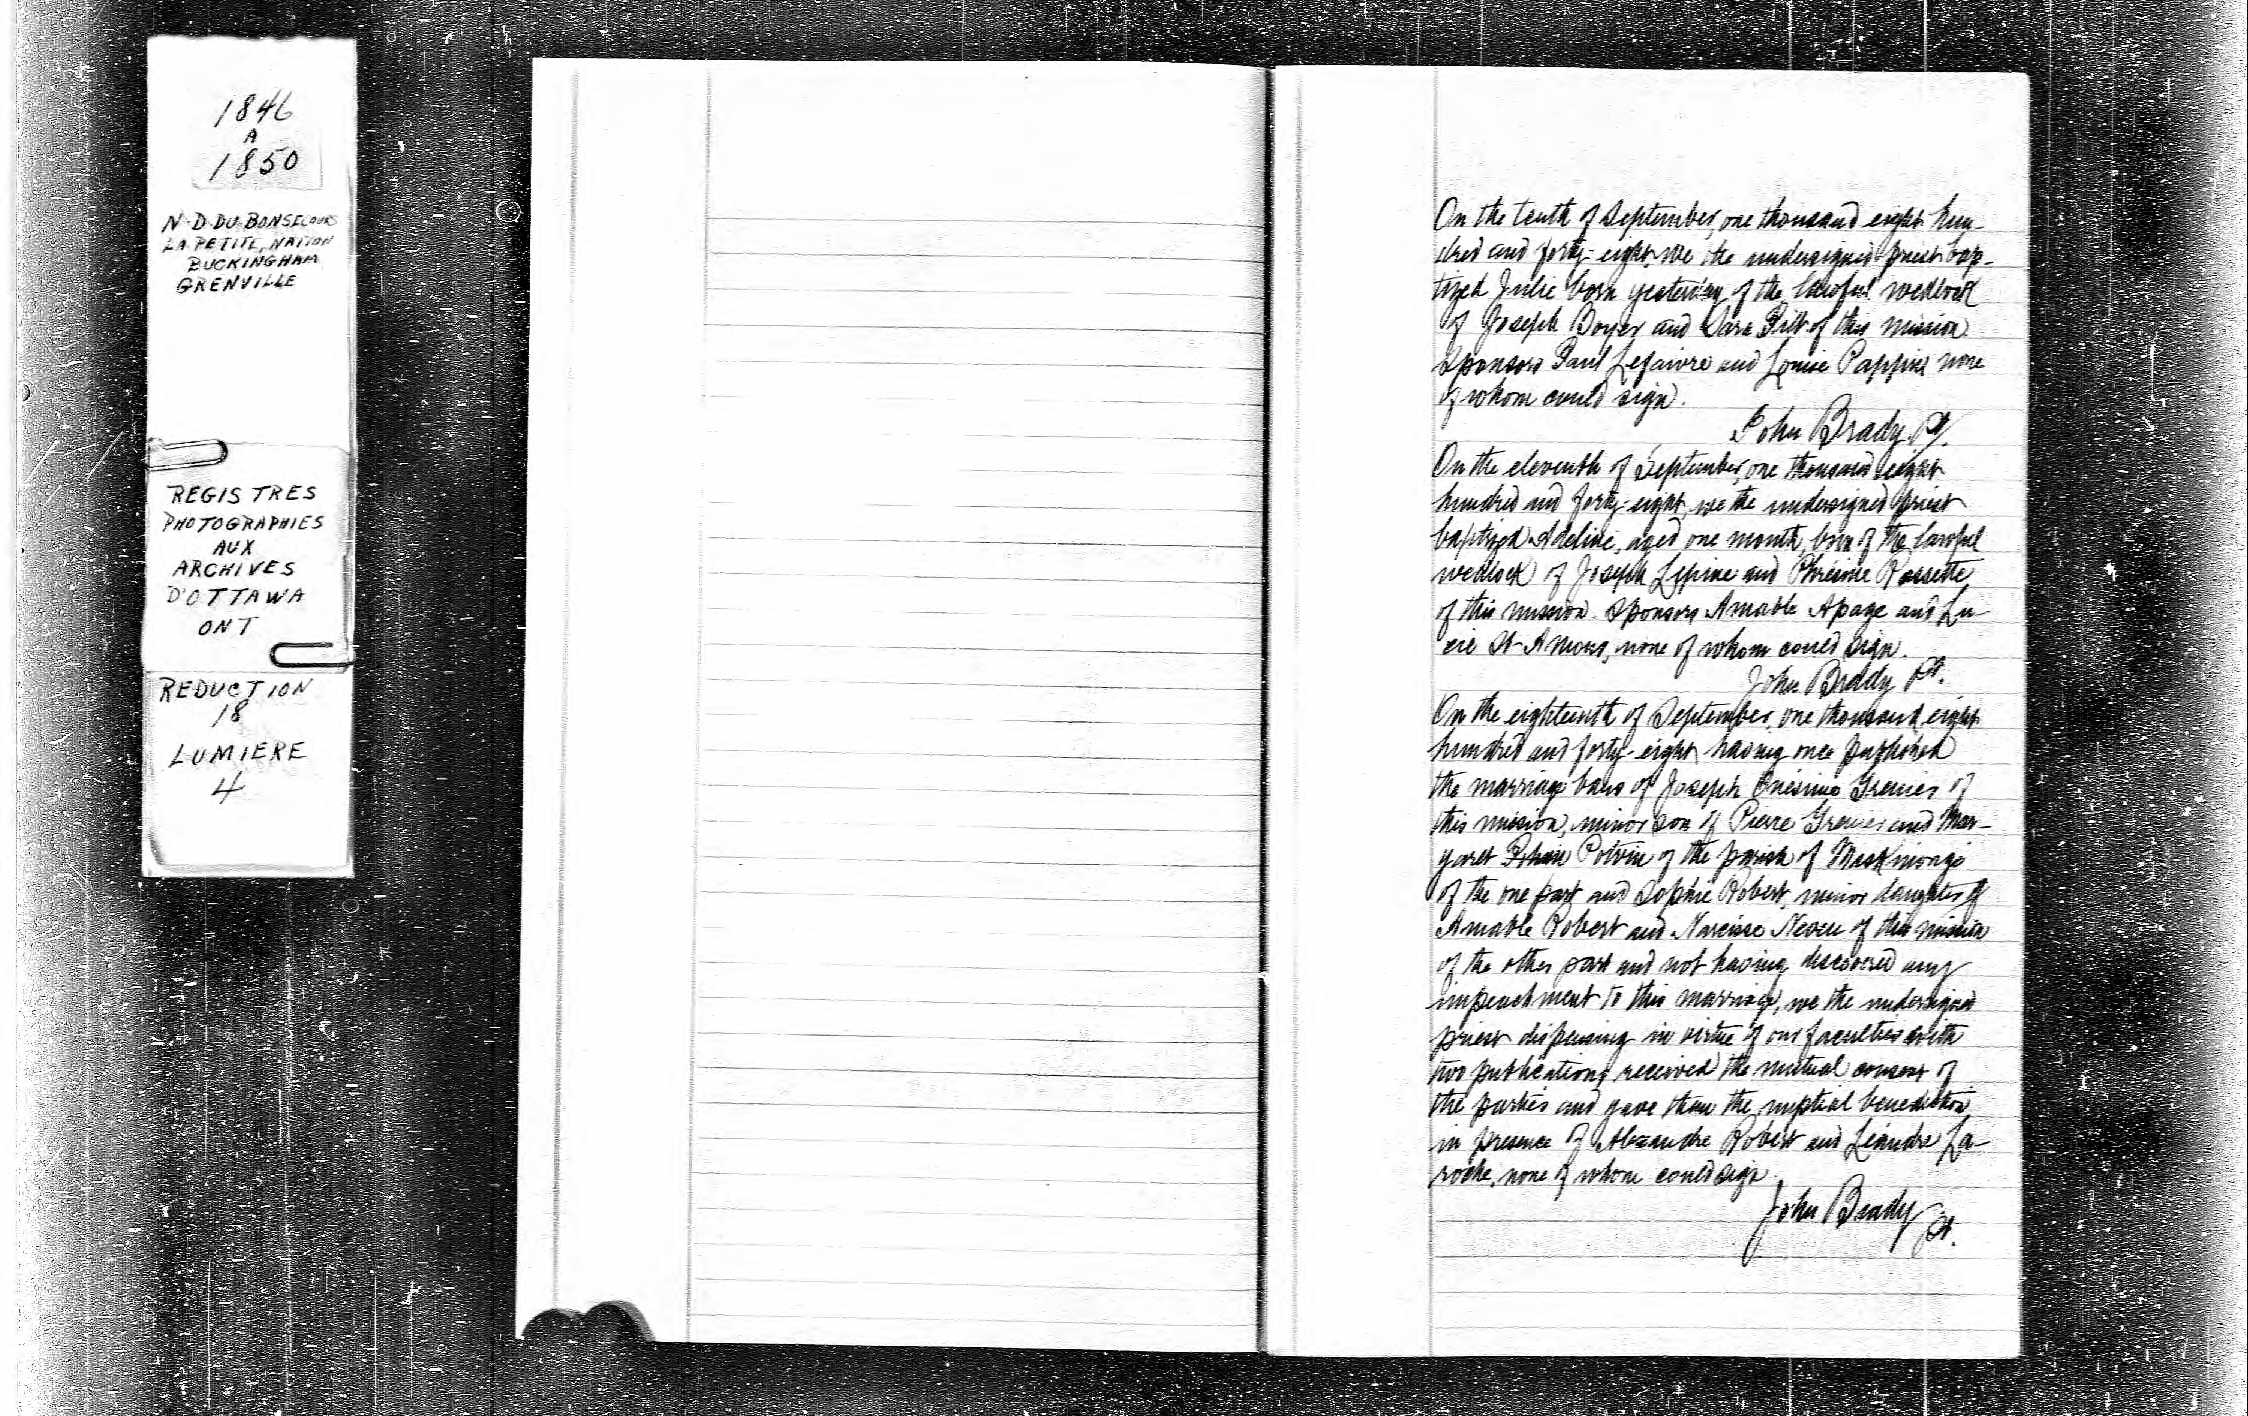 1846
A
1850
N-D-DU-BONSECOURS
LA PETITE, NATION
BUCKINGHAM
GRENVILLE
REGISTRES
PHOTOGRAPHIES
AUX
ARCHIVES
D'OTTAWA
ONT
REDUCTION
18
LUMIERE
4
On the tenth of September, one thousand eight hun-
dred and forty-eight, we the undersigned priest bap-
tized Julie born yesterday of the lawful wedlock
of Joseph Boyer and Sara of this mission.
Sponsors Paul Lefaivre and Louise none
of whom could sign.
John Brady Pt.
On the eleventh of September, one thousand eight
hundred and forty-eight, we the undersigned priest
baptized Adeline, aged one month, born of the lawful
wedlock of Joseph Lepine and Rossette
of this mission. Sponsors Amable Apage and Lu-
cie St Amour, none of whom could sign.
John Brady Pt.
On the eighteenth of September, one thousand eight
hundred and forty-eight, having once published
the marriage bans of Joseph Onésime Grenier of
this mission, minor son of Pierre Grenier and Mar-
garet Potvin of the parish of
of the one part and Sophie Robert, minor daughter of
Amable Robert and Narcisse Neveu of this mission
of the other part and not having discovered any
impeachment to this marriage, we the undersigned
priest dispensing in virtue of our faculties with
two publications received the mutual consent of
the parties and gave them the nuptial benediction
in presence of Alexandre Robert and Léandre La-
roche, none of whom could sign.
John Brady Pt.